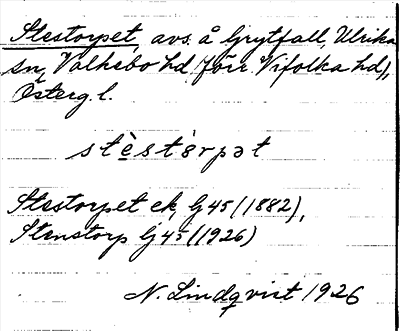 Stestorpet, avs. å Grytfall, Ulrika
sn, Valkebo hd (förr Vifolka hd),
Österg. l.
stèstòrpət
Stestorpet ek, Gj 45 (1882),
Stenstorp Gj 45 (1926)
N. Lindqvist 1926